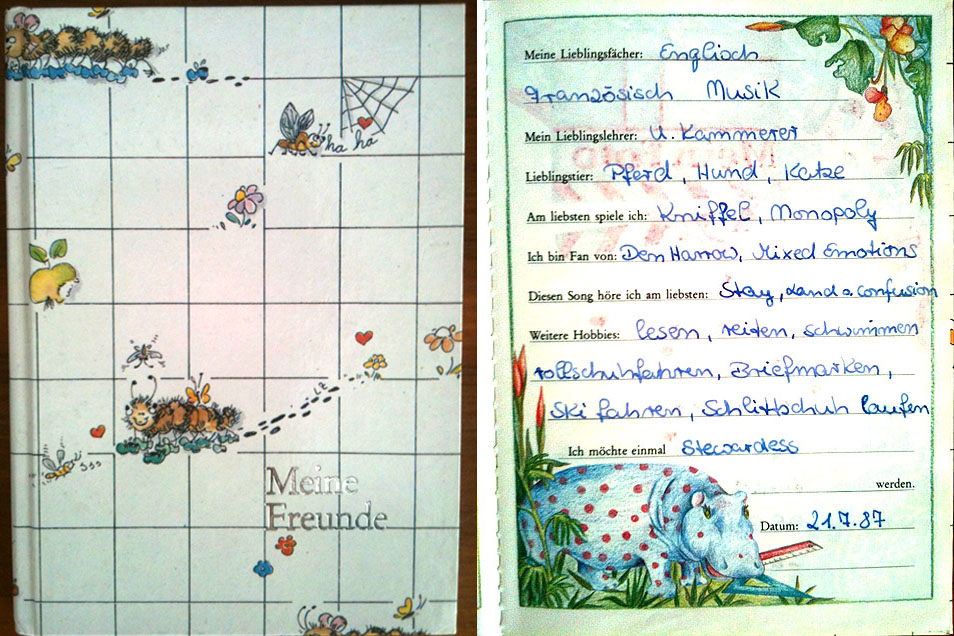 ha ha
sss
Meine
Freunde
Meine Lieblingsfächer: Englisch
Französisch Musik
Mein Lieblingslehrer: U. Kammerer
Lieblingstier: Pferd, Hund, Katze
Am liebsten spiele ich: Kniffel, Monopoly
Ich bin Fan von: Den Harrow, Mixed Emotions
Diesen Song höre ich am liebsten: Stay, Land o. confusion
Weitere Hobbies: lesen, reiten, schwimmen
rollschuhfahren, Briefmarken,
Ski fahren, Schlittschuh laufen
Ich möchte einmal Stewardess
werden.
Datum: 21.7.87